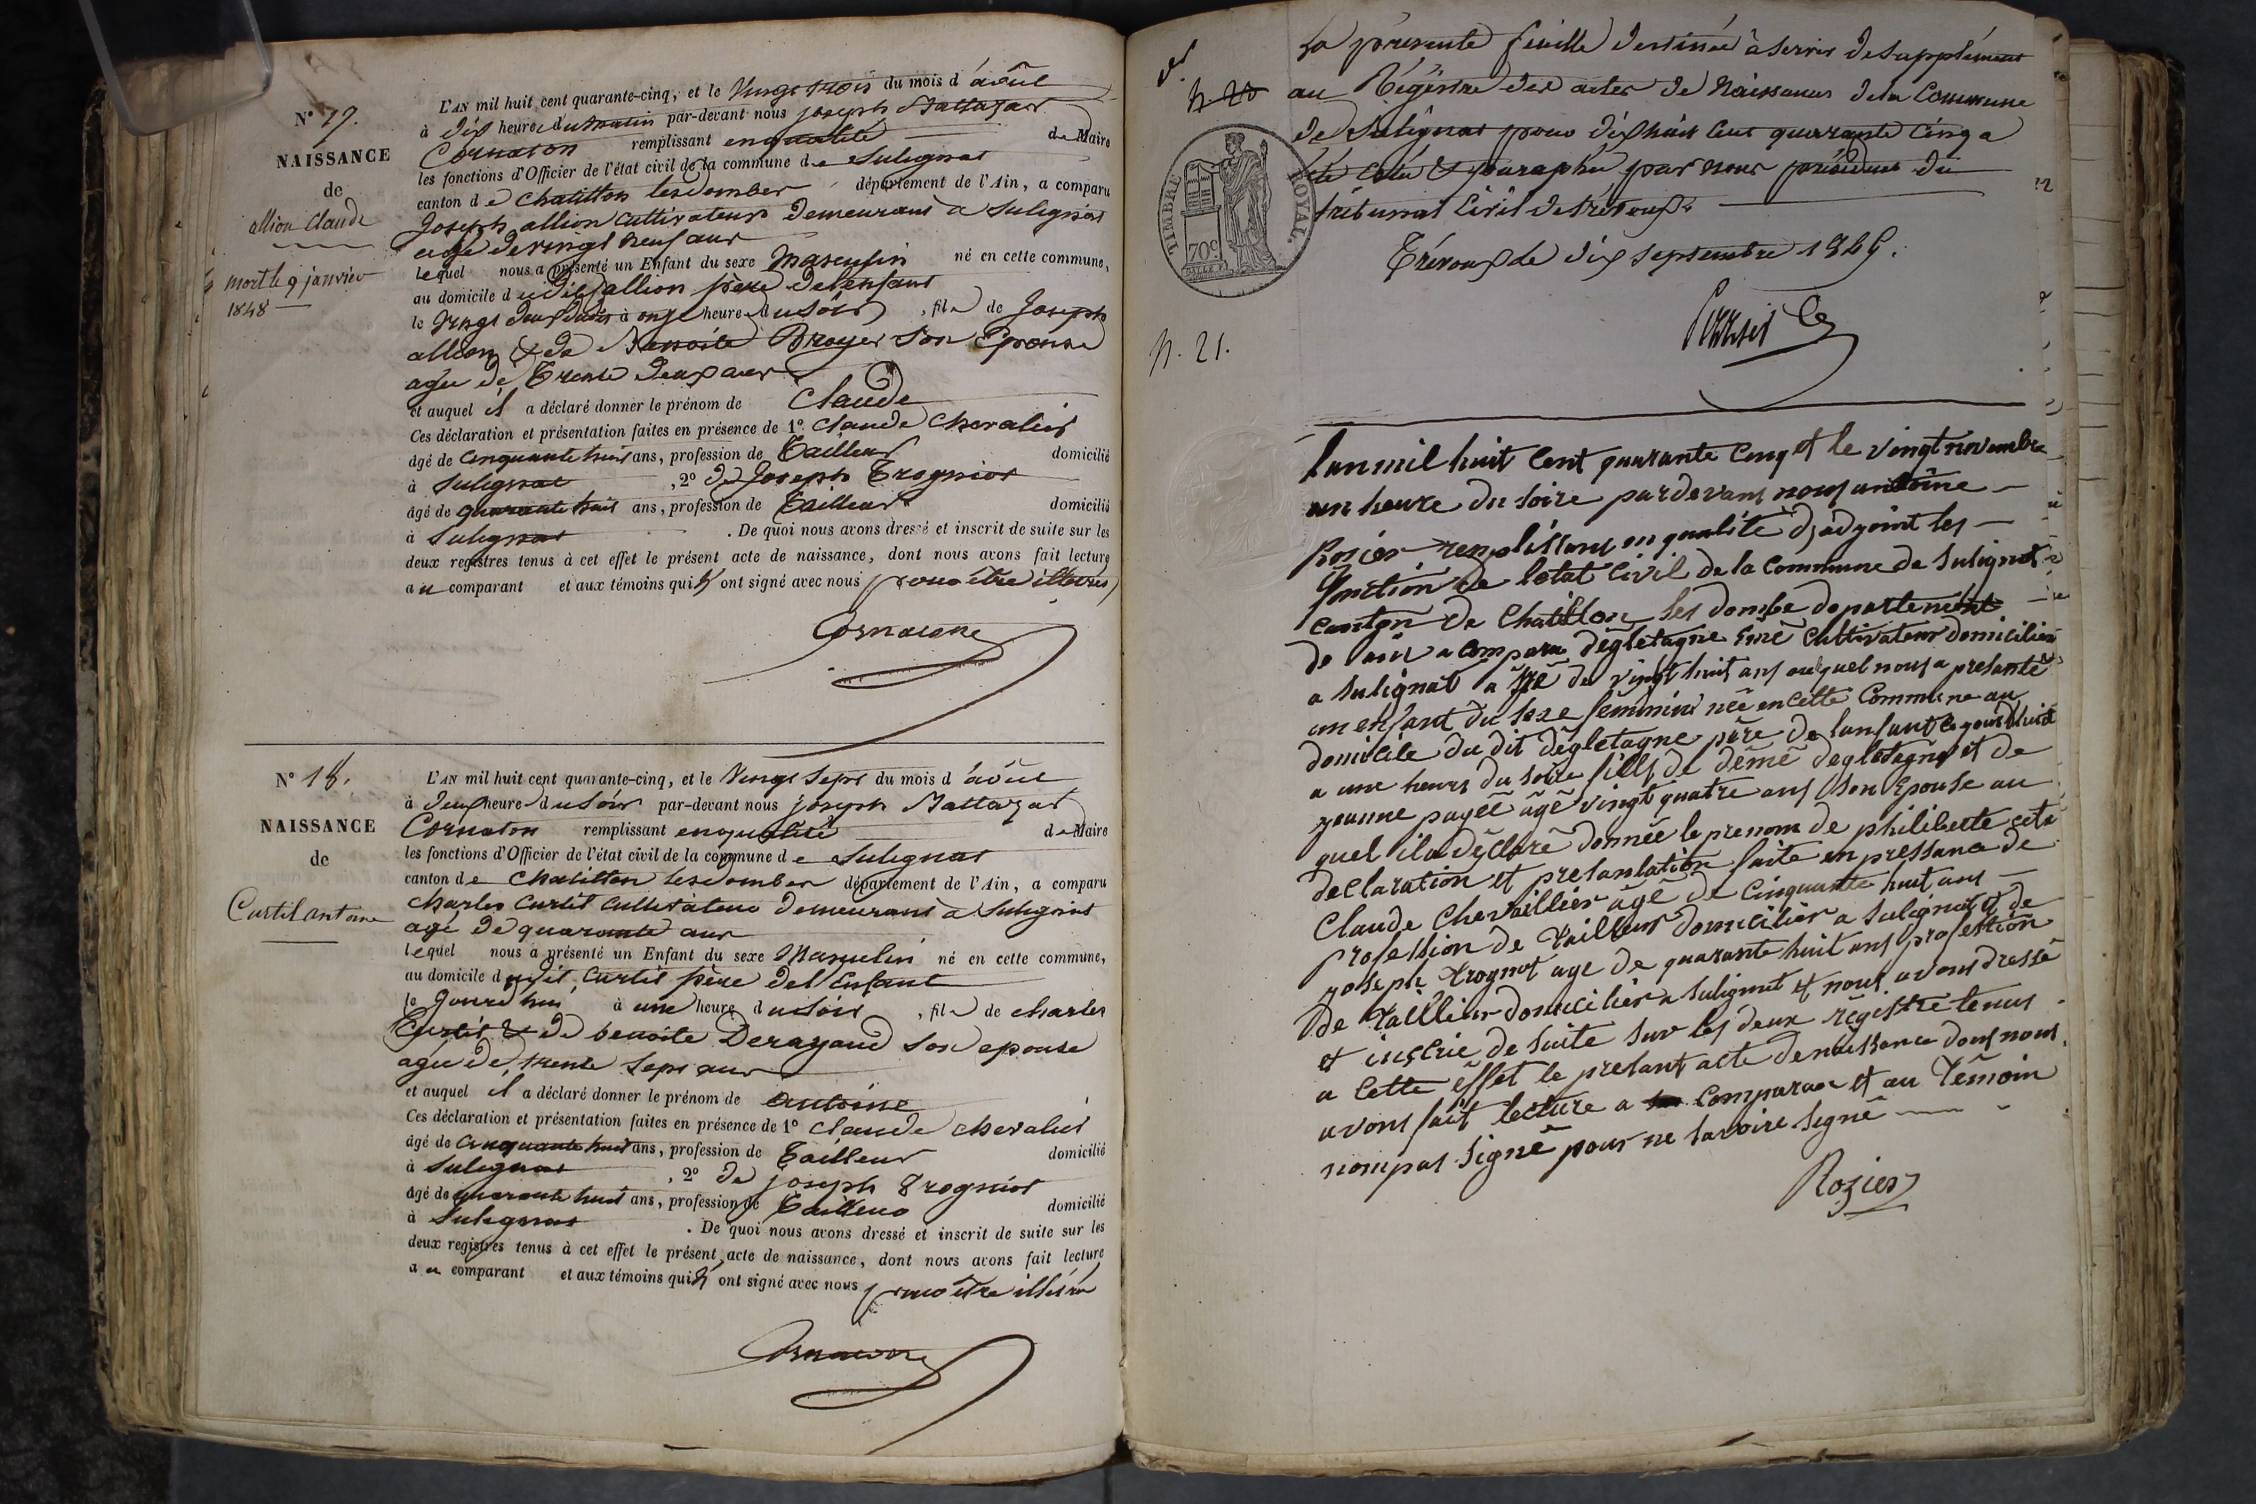 N° 17.
NAISSANCE
de
allion Claude
mort le 9 janvier
1848
L'AN mil huit cent quarante-cinq, et le Vingt trois du mois d'août
à dix heure du matin par-devant nous joseph Baltazar
Cornaton remplissant en qualité de Maire
les fonctions d'Officier de l'état civil de la commune de Sulignat
canton de Chatillon les dombes département de l'Ain, a comparu
Joseph allion cultivateur demeurant à Sulignat
agé de vingt neuf ans
lequel nous a présenté un Enfant du sexe Masculin né en cette commune,
au domicile dudit allion père de lenfant
le Vingt deux dudit à onze heure du soir, fils de Joseph
allion & de Benoite Broyer son Epouse
agée de Trente deux ans
et auquel il a déclaré donner le prénom de Claude
Ces déclaration et présentation faites en présence de 1° Claude Chevalier
âgé de cinquante huit ans, profession de Tailleur domicilié
à Sulignat, 2° de Joseph Trogniot
âgé de quarante huit ans, profession de Tailleur domicilié
à Sulignat. De quoi nous avons dressé et inscrit de suite sur les
deux registres tenus à cet effet le présent acte de naissance, dont nous avons fait lecture
au comparant et aux témoins qui n'ont signé avec nous pour être illiterés
Cornaton
N° 18.
NAISSANCE
de
Curtil antoine
L'AN mil huit cent quarante-cinq, et le Vingt Sept du mois d'août
à deux heure du soir par-devant nous joseph Baltazar
Cornaton remplissant en qualité de Maire
les fonctions d'Officier de l'état civil de la commune de Sulignat
canton de Chatillon les dombes département de l'Ain, a comparu
Charles Curtil Cultivateur demeurant à Sulignat
agé de quarante ans
lequel nous a présenté un Enfant du sexe Masculin né en cette commune,
au domicile dudit Curtil père de l'Enfant
le jourd'hui à une heure du soir, fils de Charles
Curtil & de benoite Derayaud son epouse
agée de trente sept ans
et auquel il a déclaré donner le prénom de antoine
Ces déclaration et présentation faites en présence de 1° Claude Chevalier
âgé de Cinquante huit ans, profession de Tailleur domicilié
à Sulignat, 2° de joseph Trogniot
âgé de quarante huit ans, profession de Tailleur domicilié
à Sulignat. De quoi nous avons dressé et inscrit de suite sur les
deux registres tenus à cet effet le présent acte de naissance, dont nous avons fait lecture
au comparant et aux témoins qui n'ont signé avec nous pour être
Cornaton
La présente feuille destinée à servir de supplément
n. 20
au Régistre des actes de Naissances de la Commune
de Sulignat pour dix huit cent quarante cinq a
été cotée & paraphée par nous président du
tribunal Civil de Trévoux.
Trévoux le dix septembre 1845.
TIMBRE ROYAL.
70c
n. 21.
l'an mil huit cent quarante cinq et le vingt novembre
un heure du soire pardevant nous antoine
Rosier remplissant en qualité d'adjoint les
fonction de letat civil de la commune de Sulignat
canton de Chatillon les dombe departement
de lain a comparu dégletagne émé cultivateur domicilier
a sulignat a gé de vingt huit ans auquel nous a presanté
un enfant du sexe féminin née en cette Commune au
domicile du dit dégletagne père de lanfant ce jourdhuit
a une heure du soire fille de démé degletagne et de
yeanne pagée agé vingt quatre ans son Epouse au
quel il a déclaré donnée le prenom de philiberte cete
declaration et presantation faite en pressance de
Claude Chevaillier agé de Cinquante huit ans
profession de tailleur domicilier a Sulignat et de
yoseph trognot age de quarante huit ans profession
De tailleur domicilier a sulignat et nous avons dressé
et inscrie de suite sur les deux régistre tenus
a cette effet le presant acte de naissance dont nous
avons fait lecture a comparan et au témoin
nompas signé pour ne savoire signé
Rozier